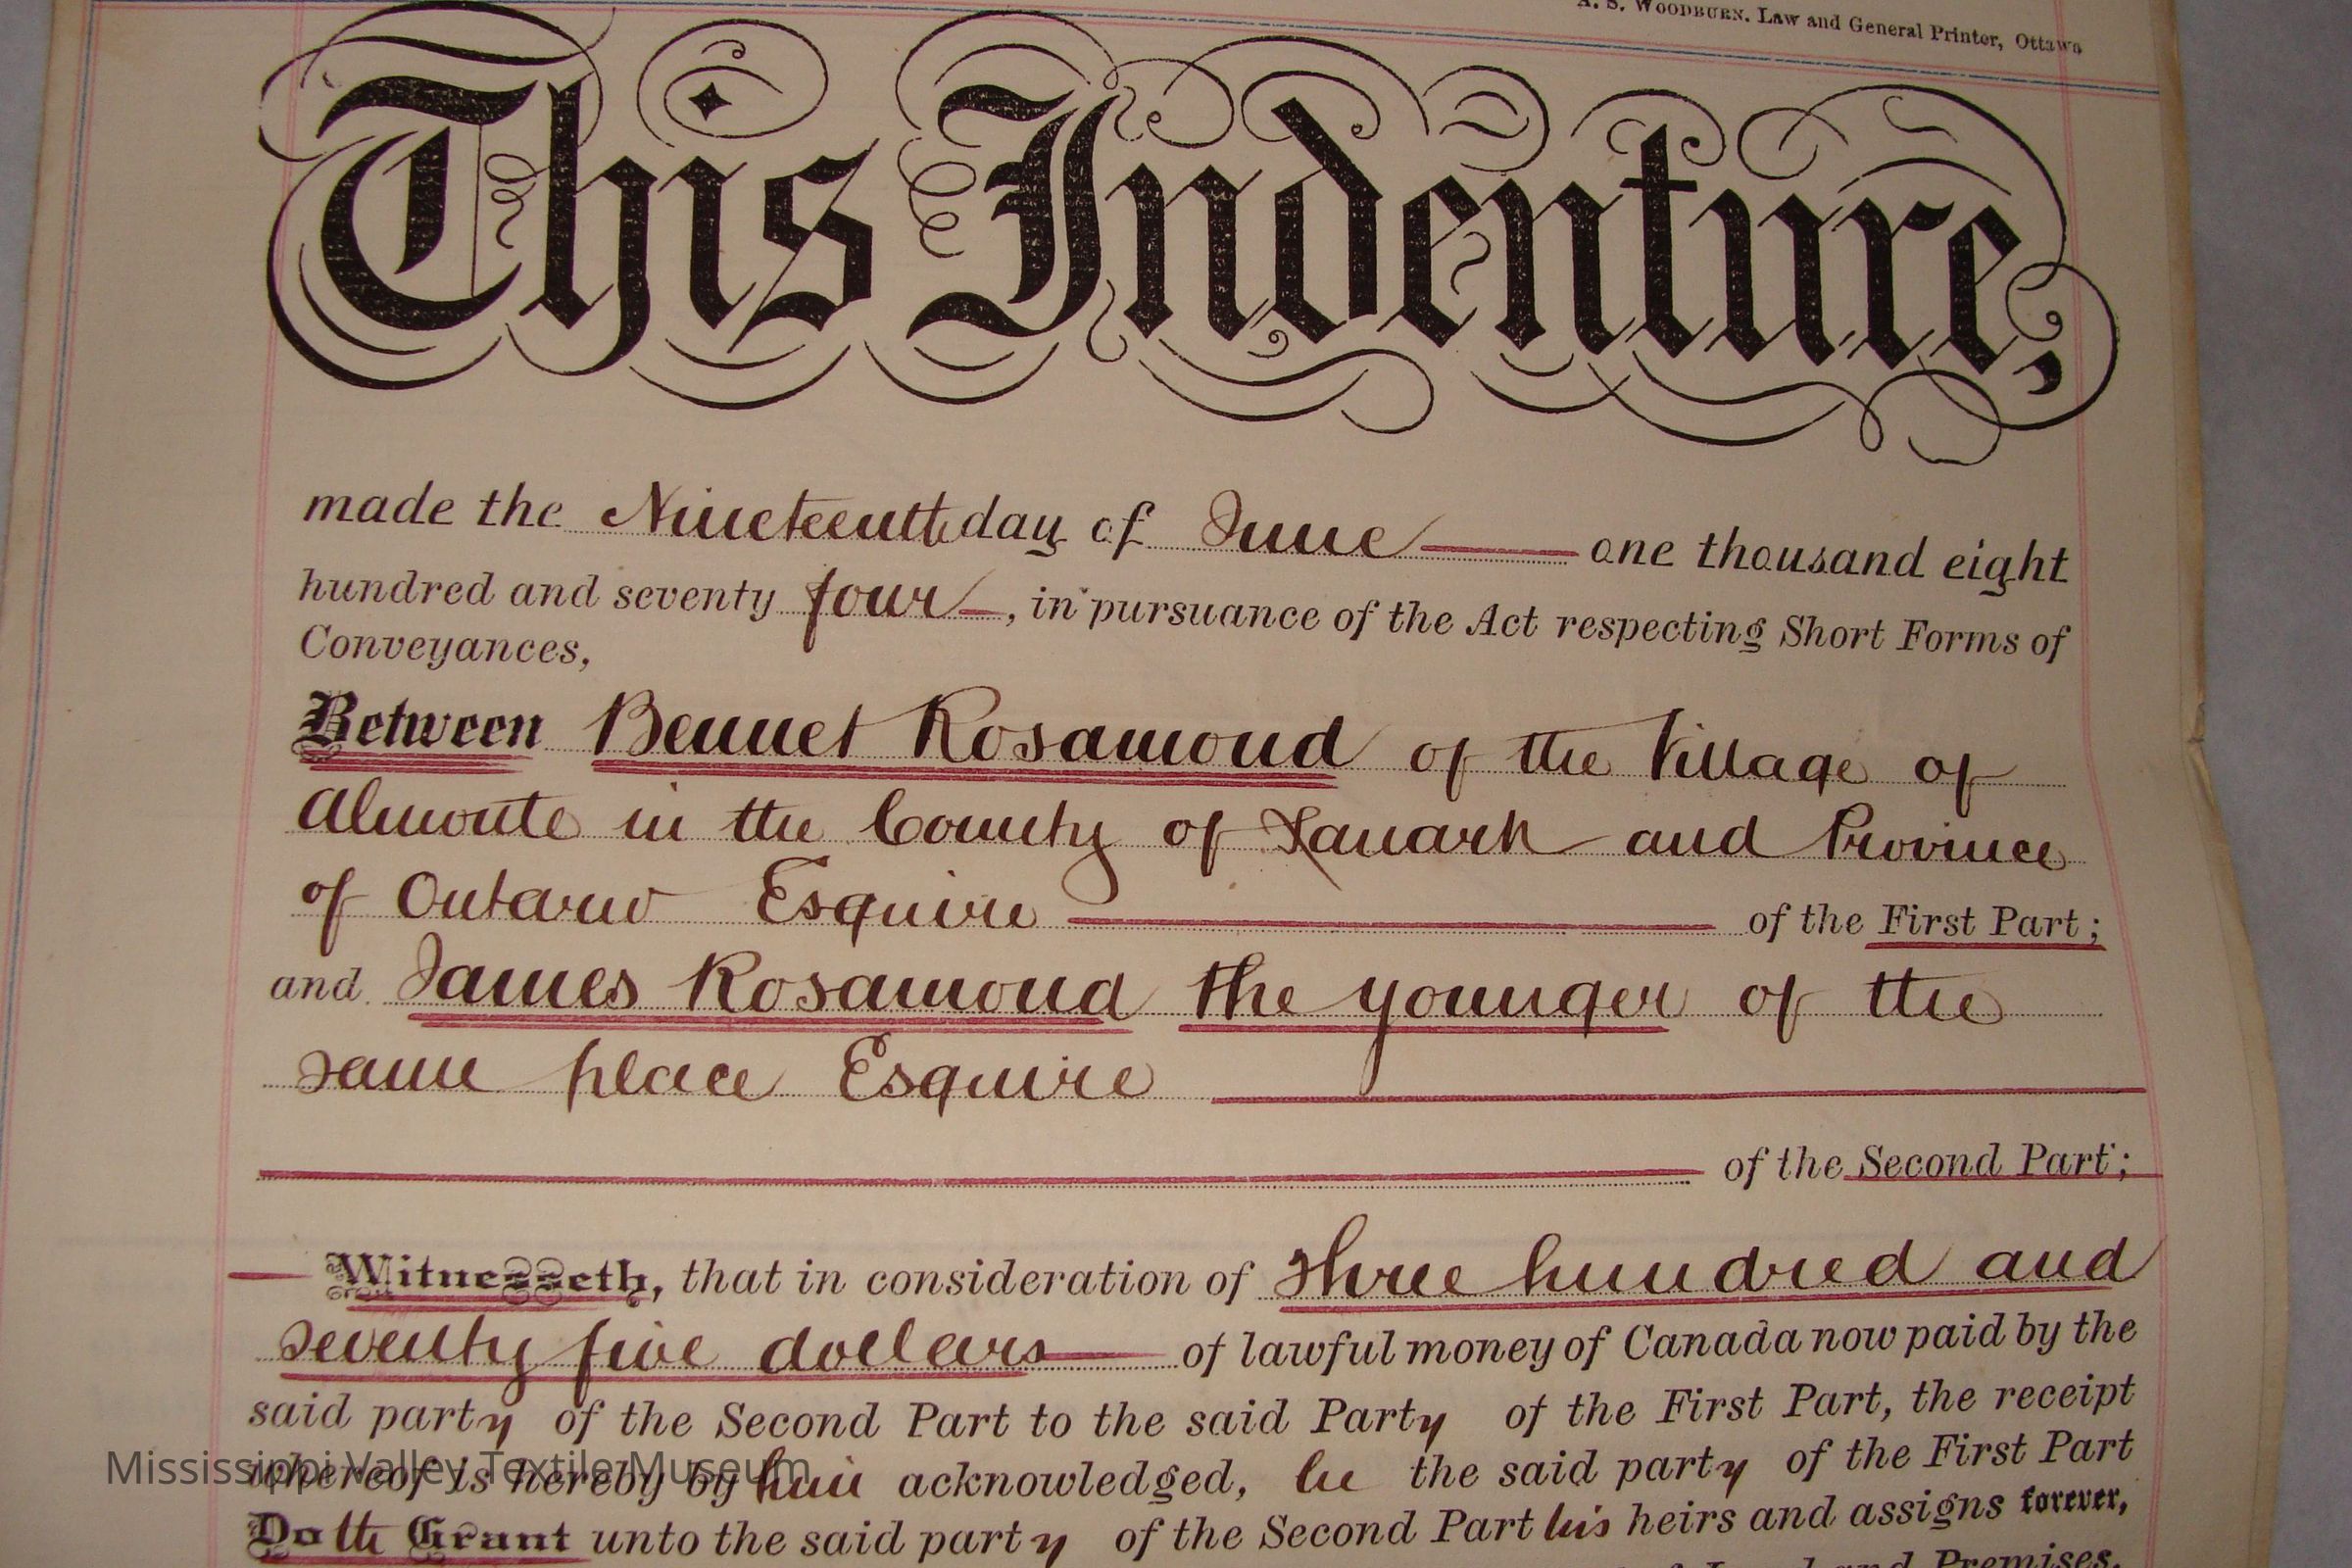 A. S. WOODBURN. Law and General Printer, Ottawa
This Indenture,
made the Nineteenth day of June one thousand eight
hundred and seventy four, in pursuance of the Act respecting Short Forms of
Conveyances,
Between Bennet Rosamond of the Village of
Almonte in the County of Lanark and Province
of Ontario Esquire of the First Part;
and James Rosamond the younger of the
same place Esquire
of the Second Part;
Witnesseth, that in consideration of three hundred and
seventy five dollars of lawful money of Canada now paid by the
said party of the Second Part to the said Party of the First Part, the receipt
whereof is hereby by him acknowledged, he the said party of the First Part
Mississippi Valley Textile Museum
Doth Grant unto the said party of the Second Part his heirs and assigns forever,
of Land and Premises,